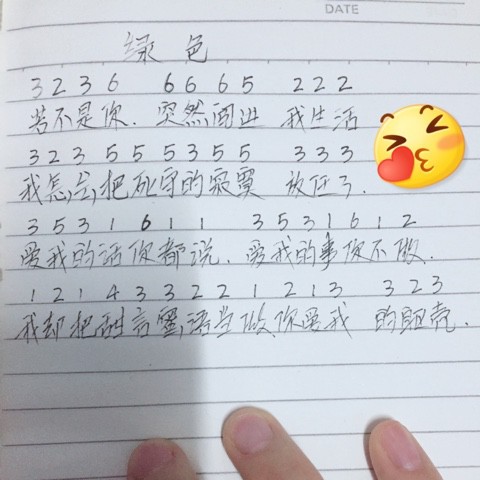 DATE
绿色
3 2 3 6 6 6 6 5 2 2 2
若不是你.突然闯进 我生活
3 2 3 5 5 5 5 3 5 5 3 3 3
我怎会,把死守的寂寞 放任了.
3 5 3 1 6 1 1 3 5 3 1 6 1 2
爱我的话你都说.爱我的事你不做.
1 2 1 4 3 3 2 2 1 2 1 3 3 2 3
我却把甜言蜜,语当做,你爱我 的躯壳.